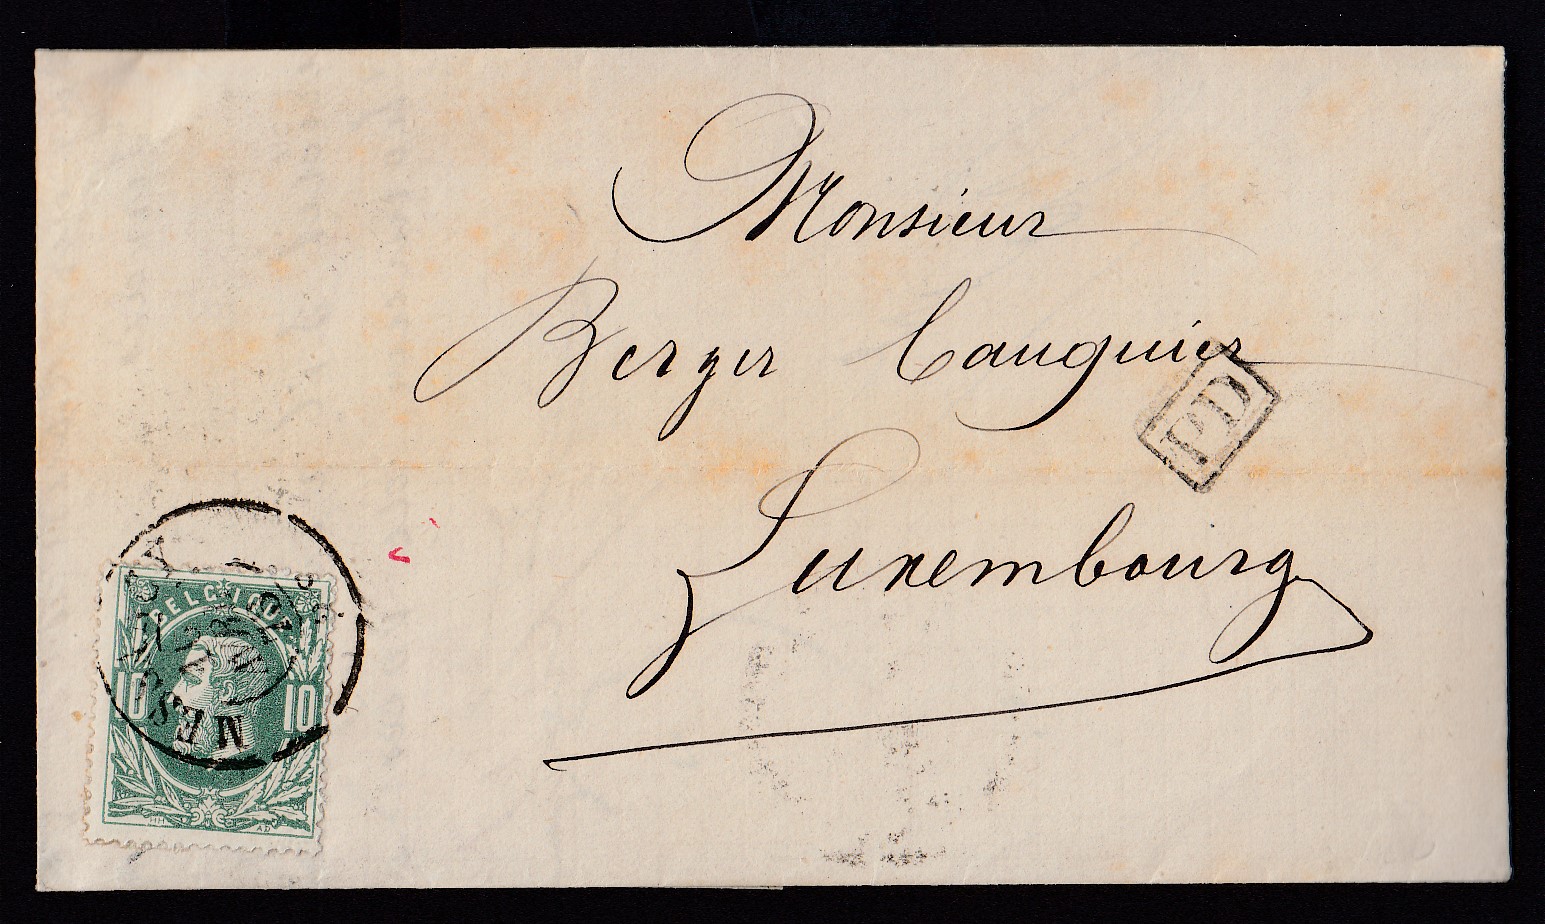 Monsieur
Berger Cauquier
Luxembourg
PD
BELGIQUE
10 10
HH AD